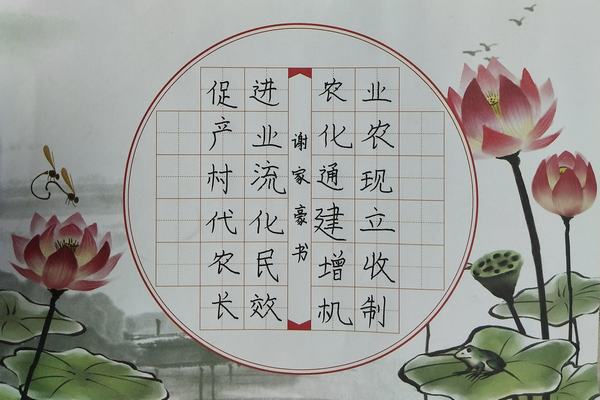 促进农业
产业化农
村流通现
代化建立
农民增收
长效机制
谢家豪书